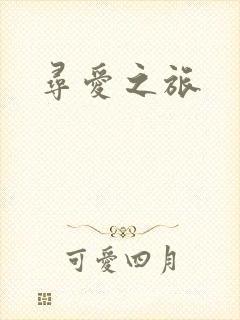 尋愛之旅
可愛四月